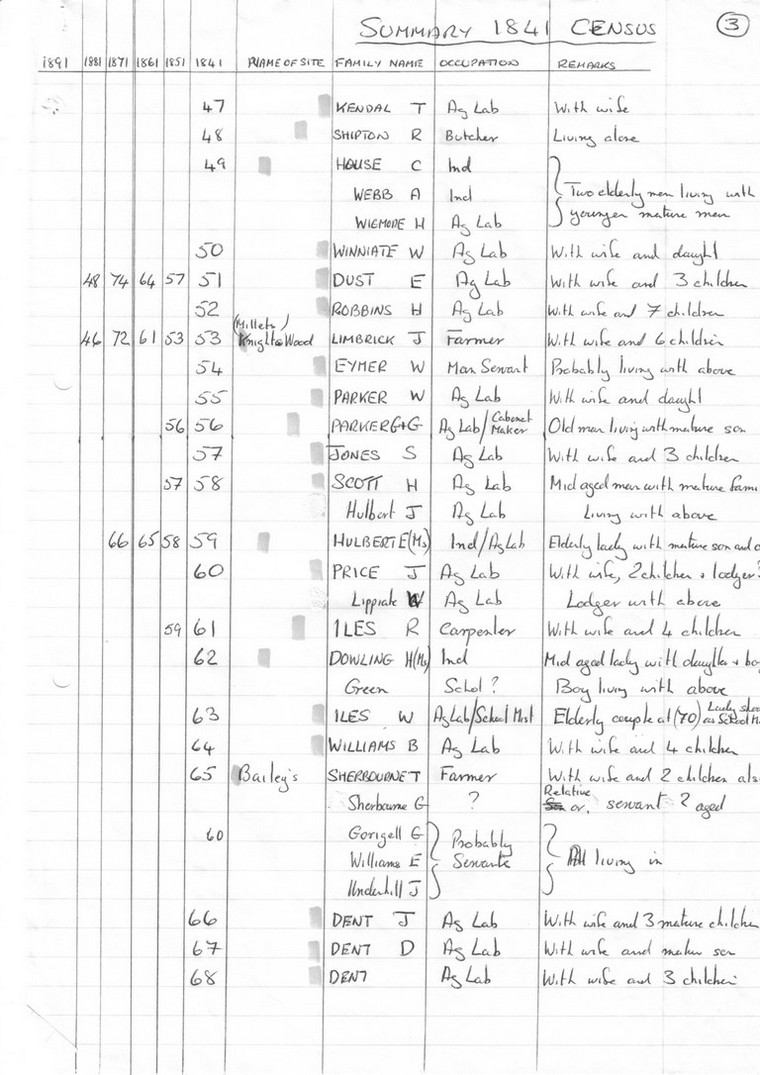 SUMMARY 1841 CENSUS 3
1891 1881 1871 1861 1851 1841 NAME OF SITE FAMILY NAME OCCUPATION REMARKS
47 KENDAL T Ag Lab With wife
48 SHIPTON R Butcher Living alone
49 HOUSE C Ind
WEBB A Ind Two elderly men living with
WIGMORE H Ag Lab younger mature men
50 WINNIATE W Ag Lab With wife and daught
48 74 64 57 51 DUST E Ag Lab With wife and 3 children
52 ROBBINS H Ag Lab With wife and 7 children
(Millets)
46 72 61 53 53 Knights Wood LIMBRICK J Farmer With wife and 6 children
54 EYMER W Man Servant Probably living with above
55 PARKER W Ag Lab With wife and daught
56 56 PARKER G+G Ag Lab/Cabenet Maker Old man living with mature son
57 JONES S Ag Lab With wife and 3 children
57 58 SCOTT H Ag Lab Mid aged man with mature fami
Hulbert J Ag Lab Living with above
66 65 58 59 HULBERT E(Ms) Ind/Ag Lab Elderly lady with mature son and
60 PRICE J Ag Lab With wife, 2 children + lodger?
Lippiate W Ag Lab Lodger with above
59 61 ILES R Carpenter With wife and 4 children
62 DOWLING H(Ms) Ind Mid aged lady with daughter + boy
Green Schol? Boy living with above
63 ILES W Ag Lab/School Mist Elderly couple at (70) Lady as School M
64 WILLIAMS B Ag Lab With wife and 4 children
65 Bailey's SHERBOURNE T Farmer With wife and 2 children als
Relative
Sherbourne G ? Son or. servant ? aged
60 Gorigell G Probably
Williams E Servants All living in
Underhill J
66 DENT J Ag Lab With wife and 3 mature children
67 DENT D Ag Lab With wife and matur son
68 DENT Ag Lab With wife and 3 children